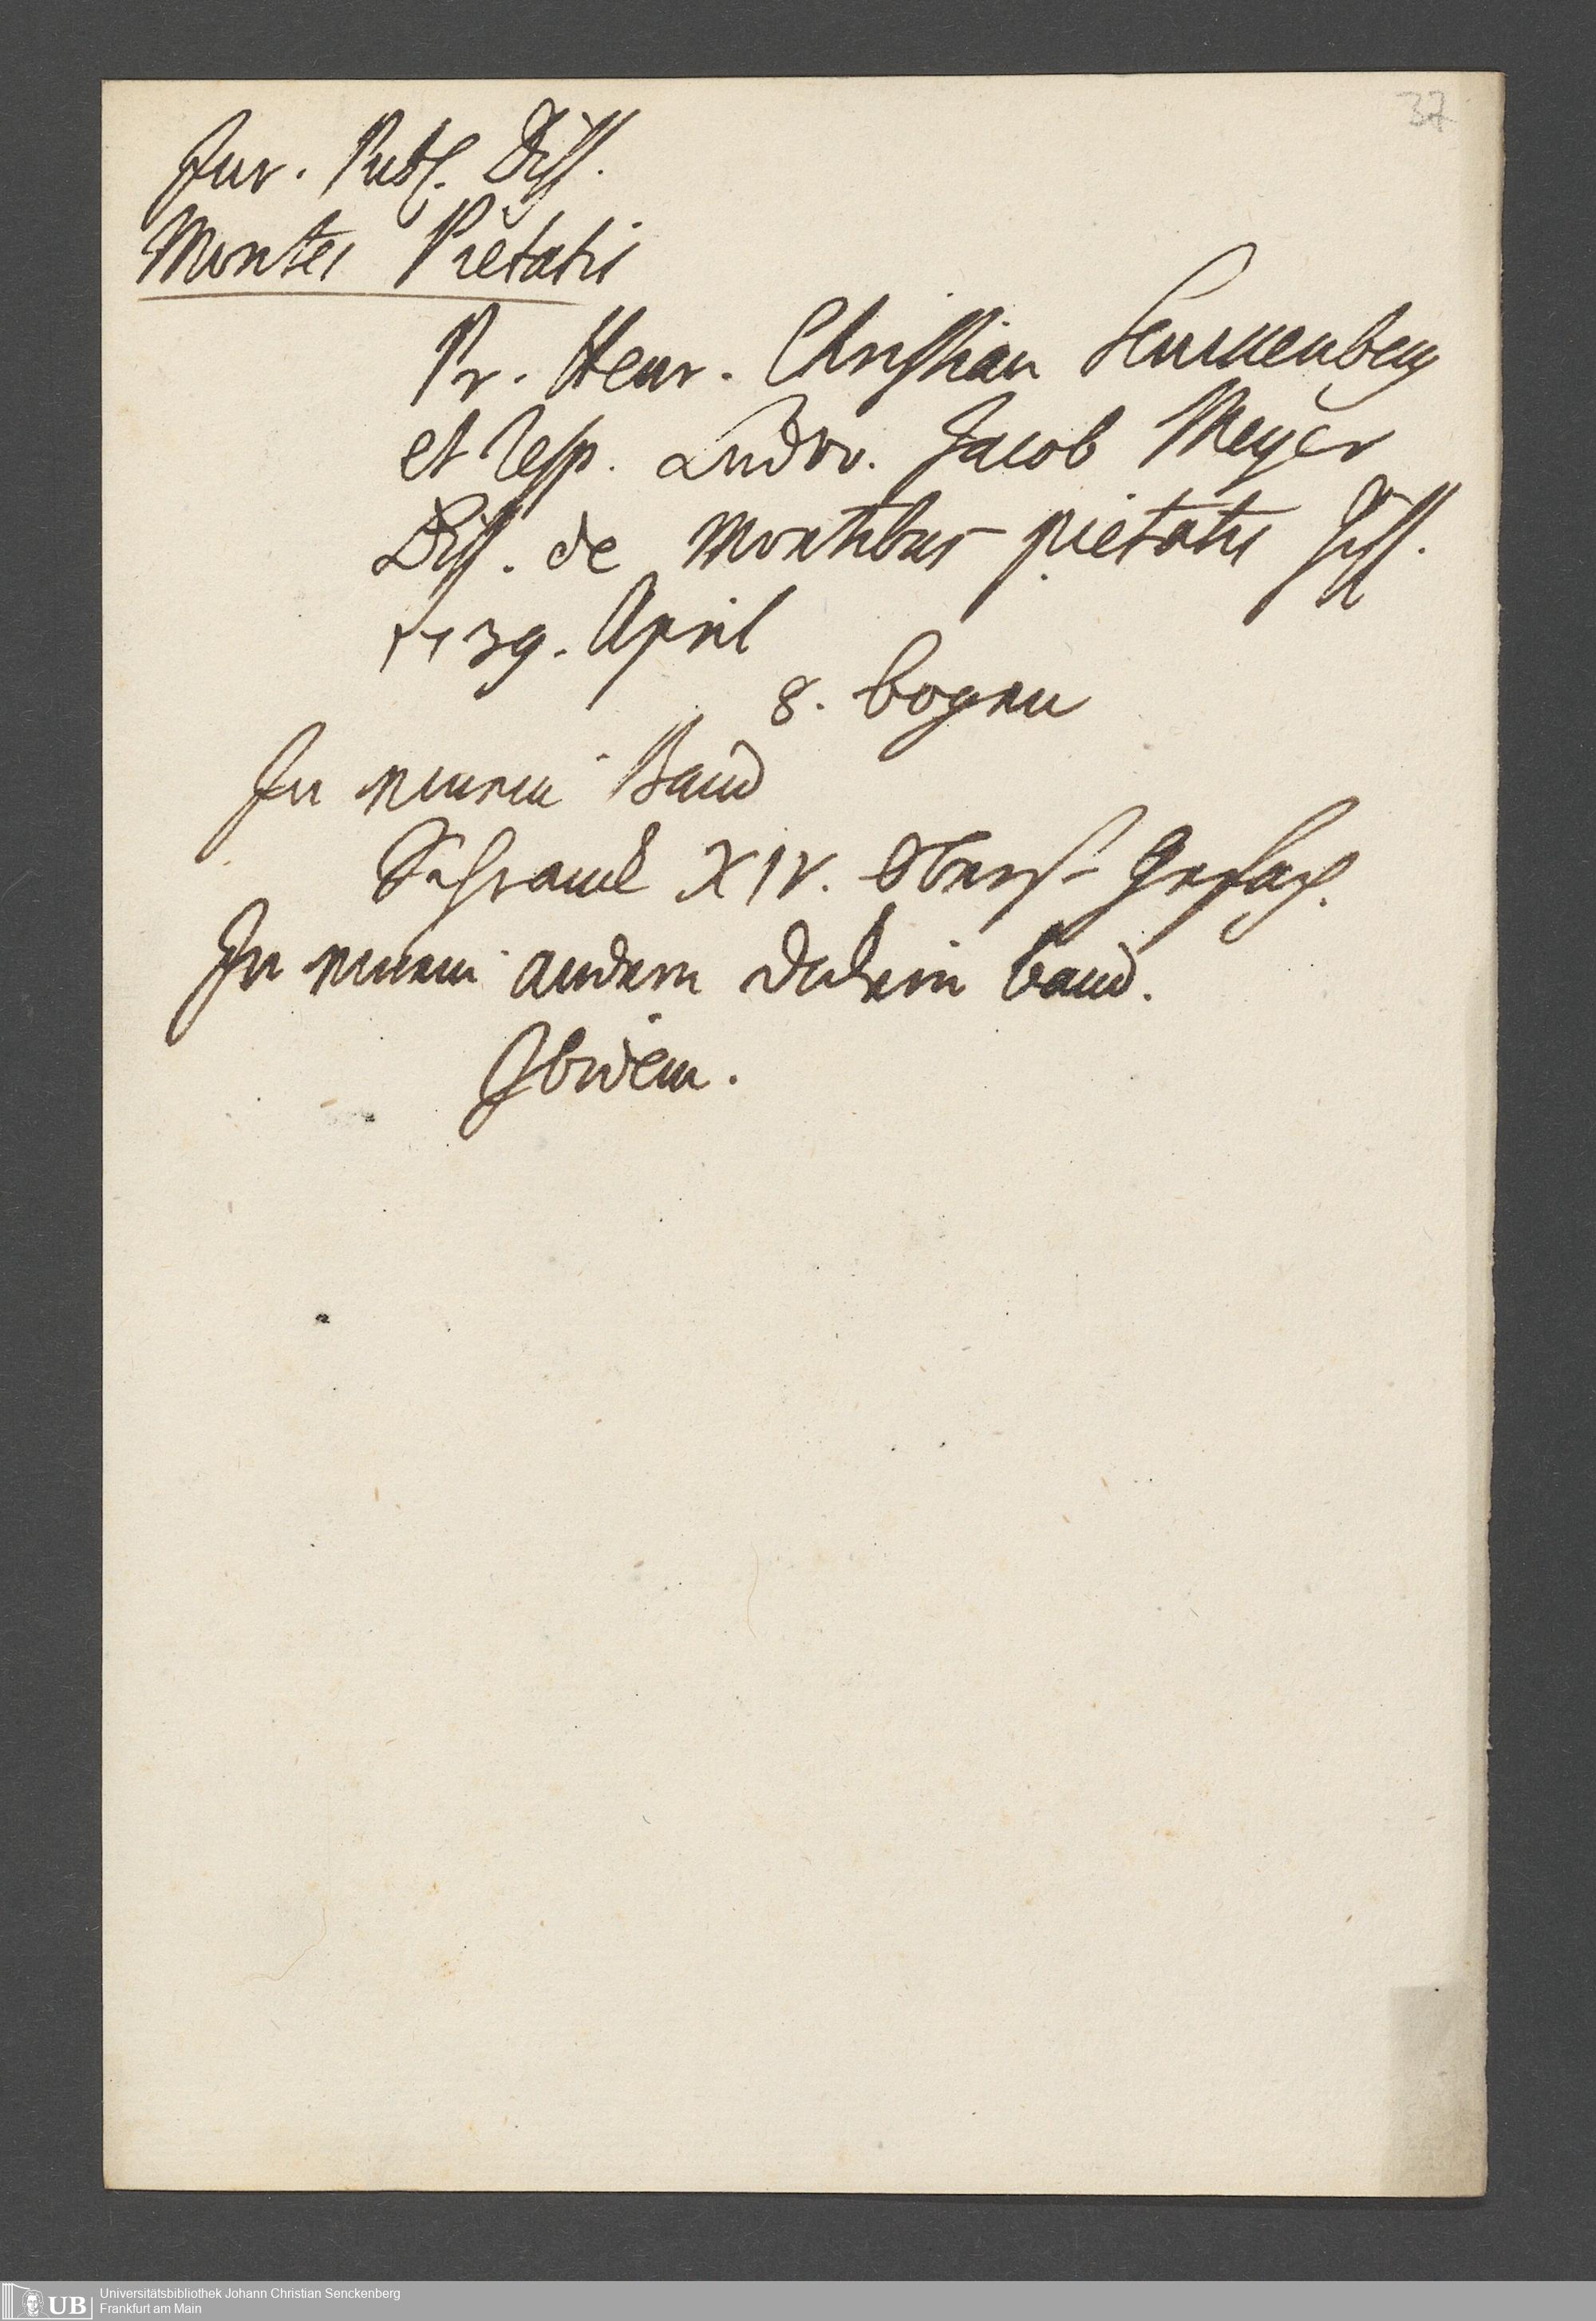 37
Jur. Publ. Diss.
Montes Pietatis
Pr. Henr. Christian Senckenberg
et resp. Ludov. Jacob Meyer
Diss. de montibus pietatis Giss.
1739. April
8. bogen
In einem Band
Schranck XIV. Oberst Gefach.
In einem andern band.
Ibidem.
UB Universitätsbibliothek Johann Christian Senckenberg
Frankfurt am Main